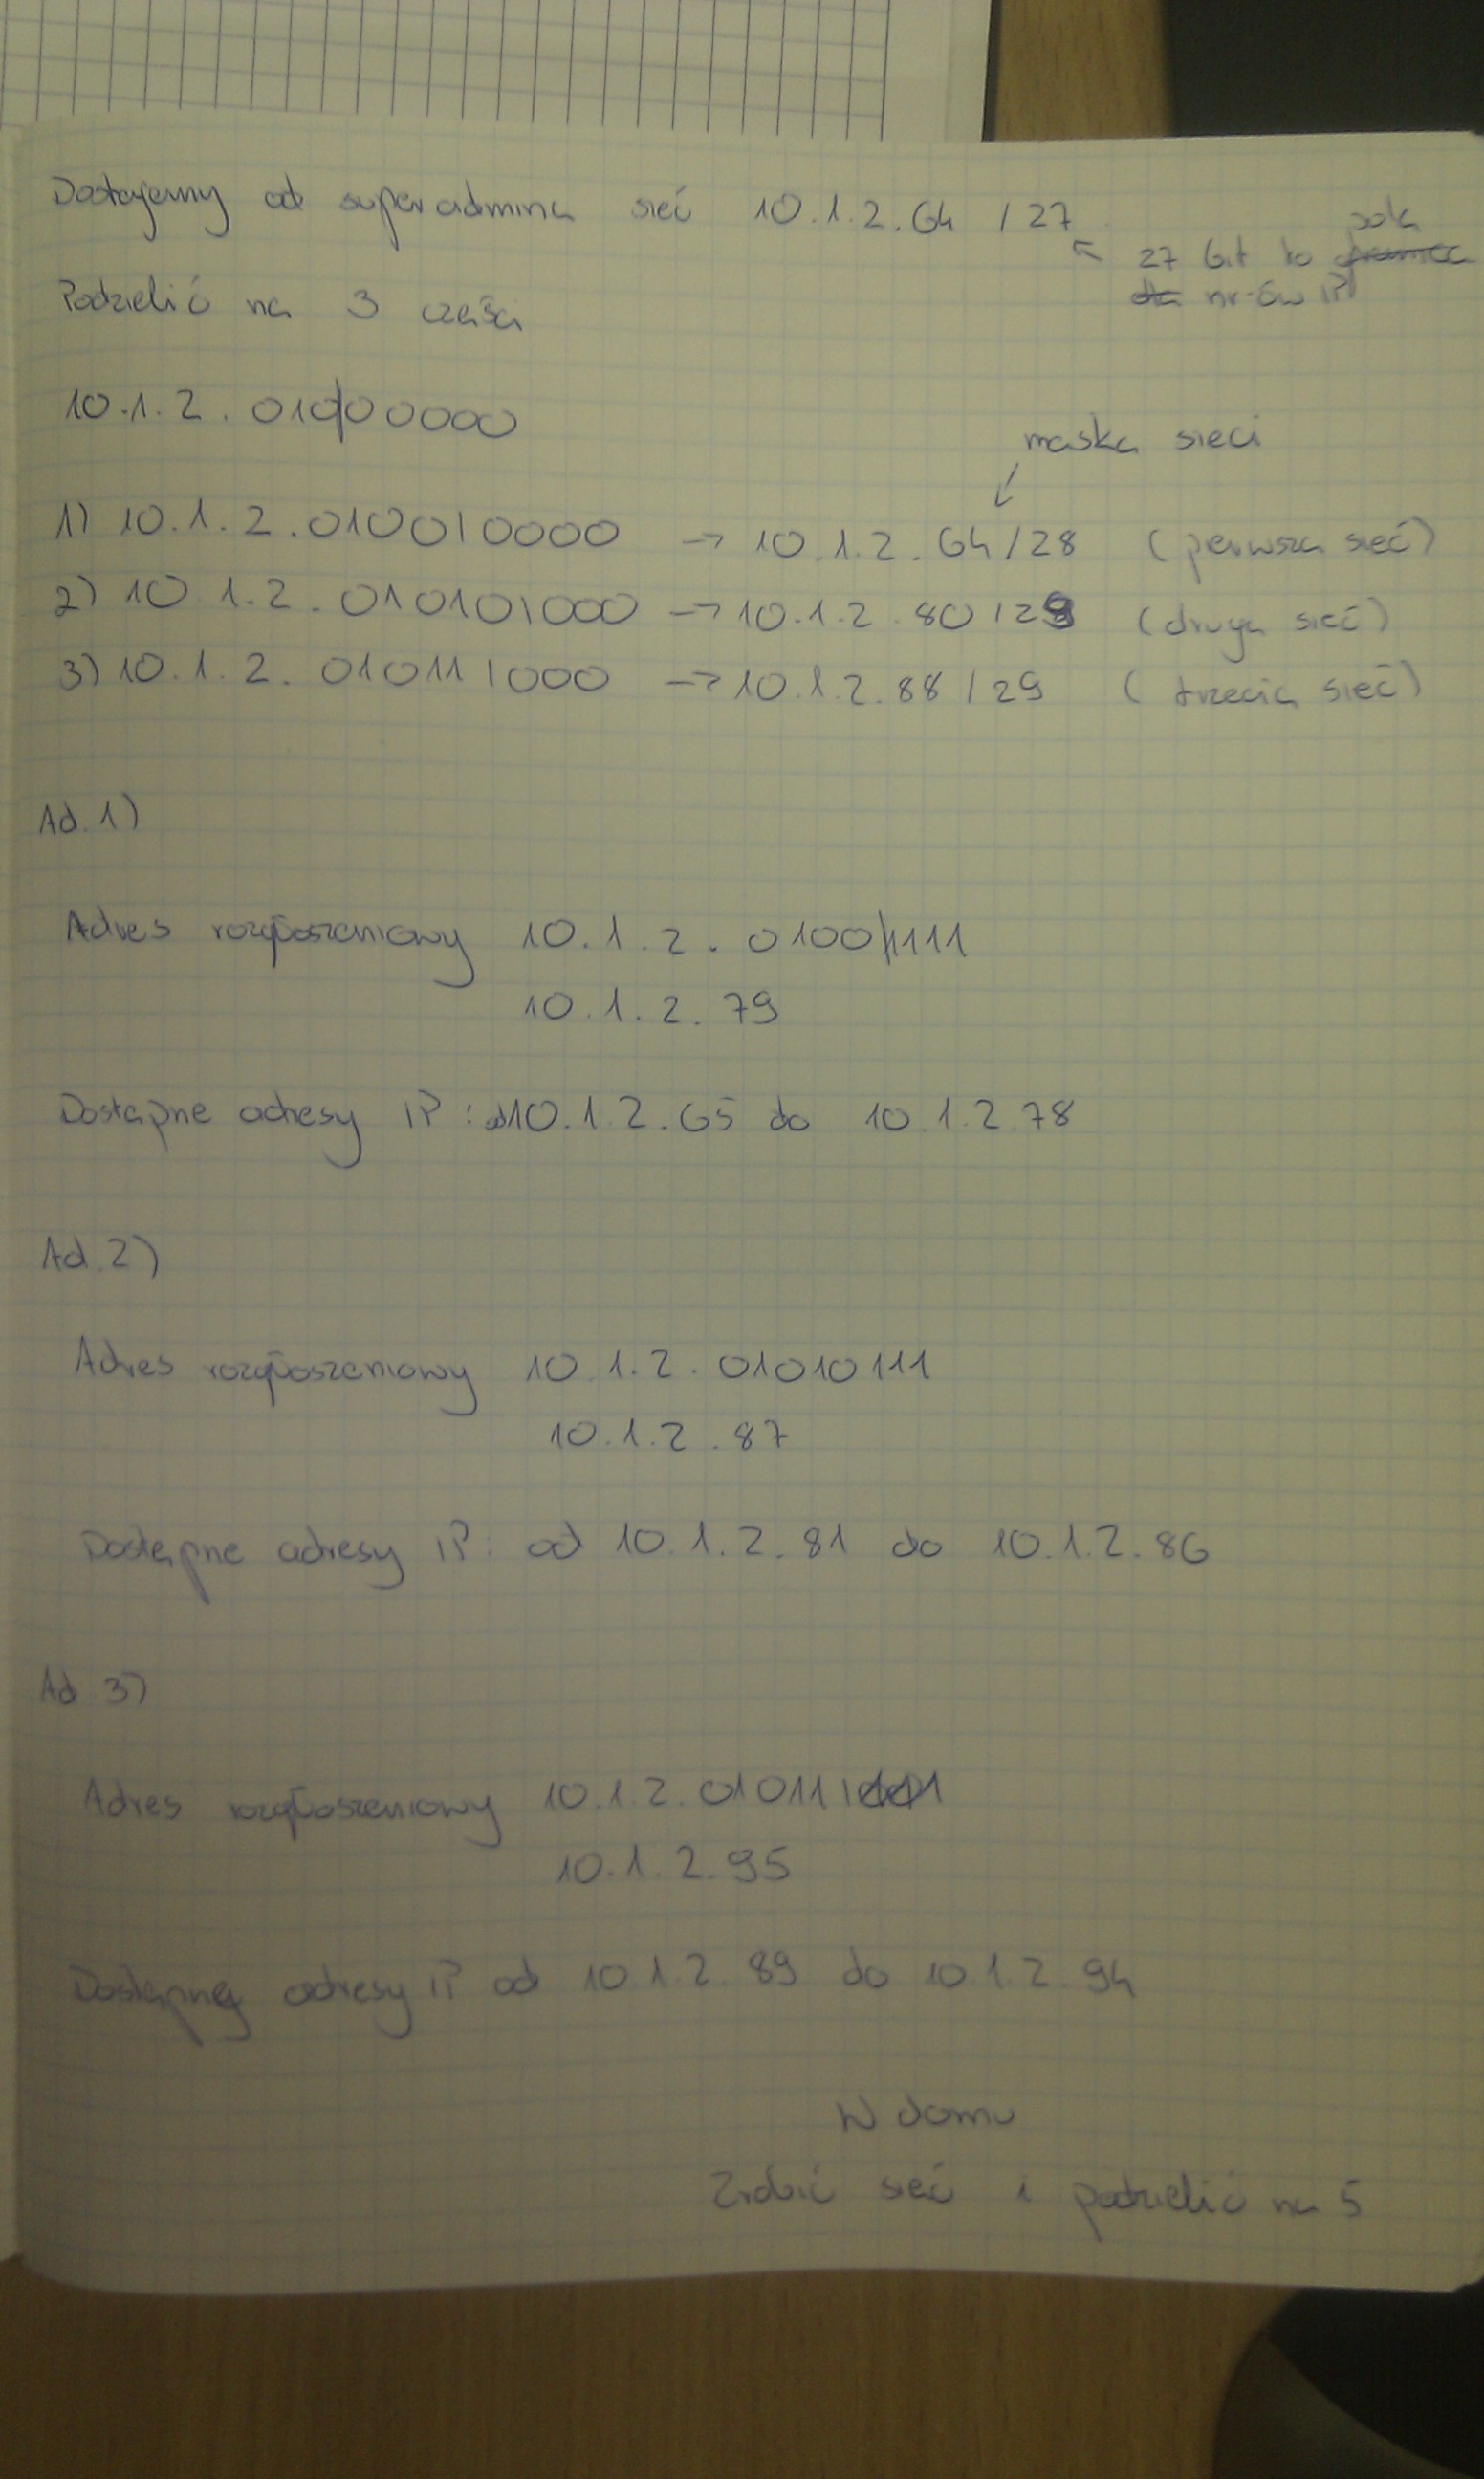 Dostajemy od superadmina sieć 10.1.2.64 /27
27 bit to pola
nr-ów IP
Podzielić na 3 części
10.1.2.010|00000
maska sieci
1) 10.1.2.0100|0000 → 10.1.2.64/28 (pierwsza sieć)
2) 10.1.2.01010|000 → 10.1.2.80/29 (druga sieć)
3) 10.1.2.01011|000 → 10.1.2.88/29 (trzecia sieć)
Ad. 1)
Adres rozgłoszeniowy 10.1.2.0100|1111
10.1.2.79
Dostępne adresy IP: od 10.1.2.65 do 10.1.2.78
Ad. 2)
Adres rozgłoszeniowy 10.1.2.01010111
10.1.2.87
Dostępne adresy IP: od 10.1.2.81 do 10.1.2.86
Ad 3)
Adres rozgłoszeniowy 10.1.2.01011
10.1.2.95
Dostępne adresy IP od 10.1.2.89 do 10.1.2.94
W domu
Zrobić sieć i podzielić na 5